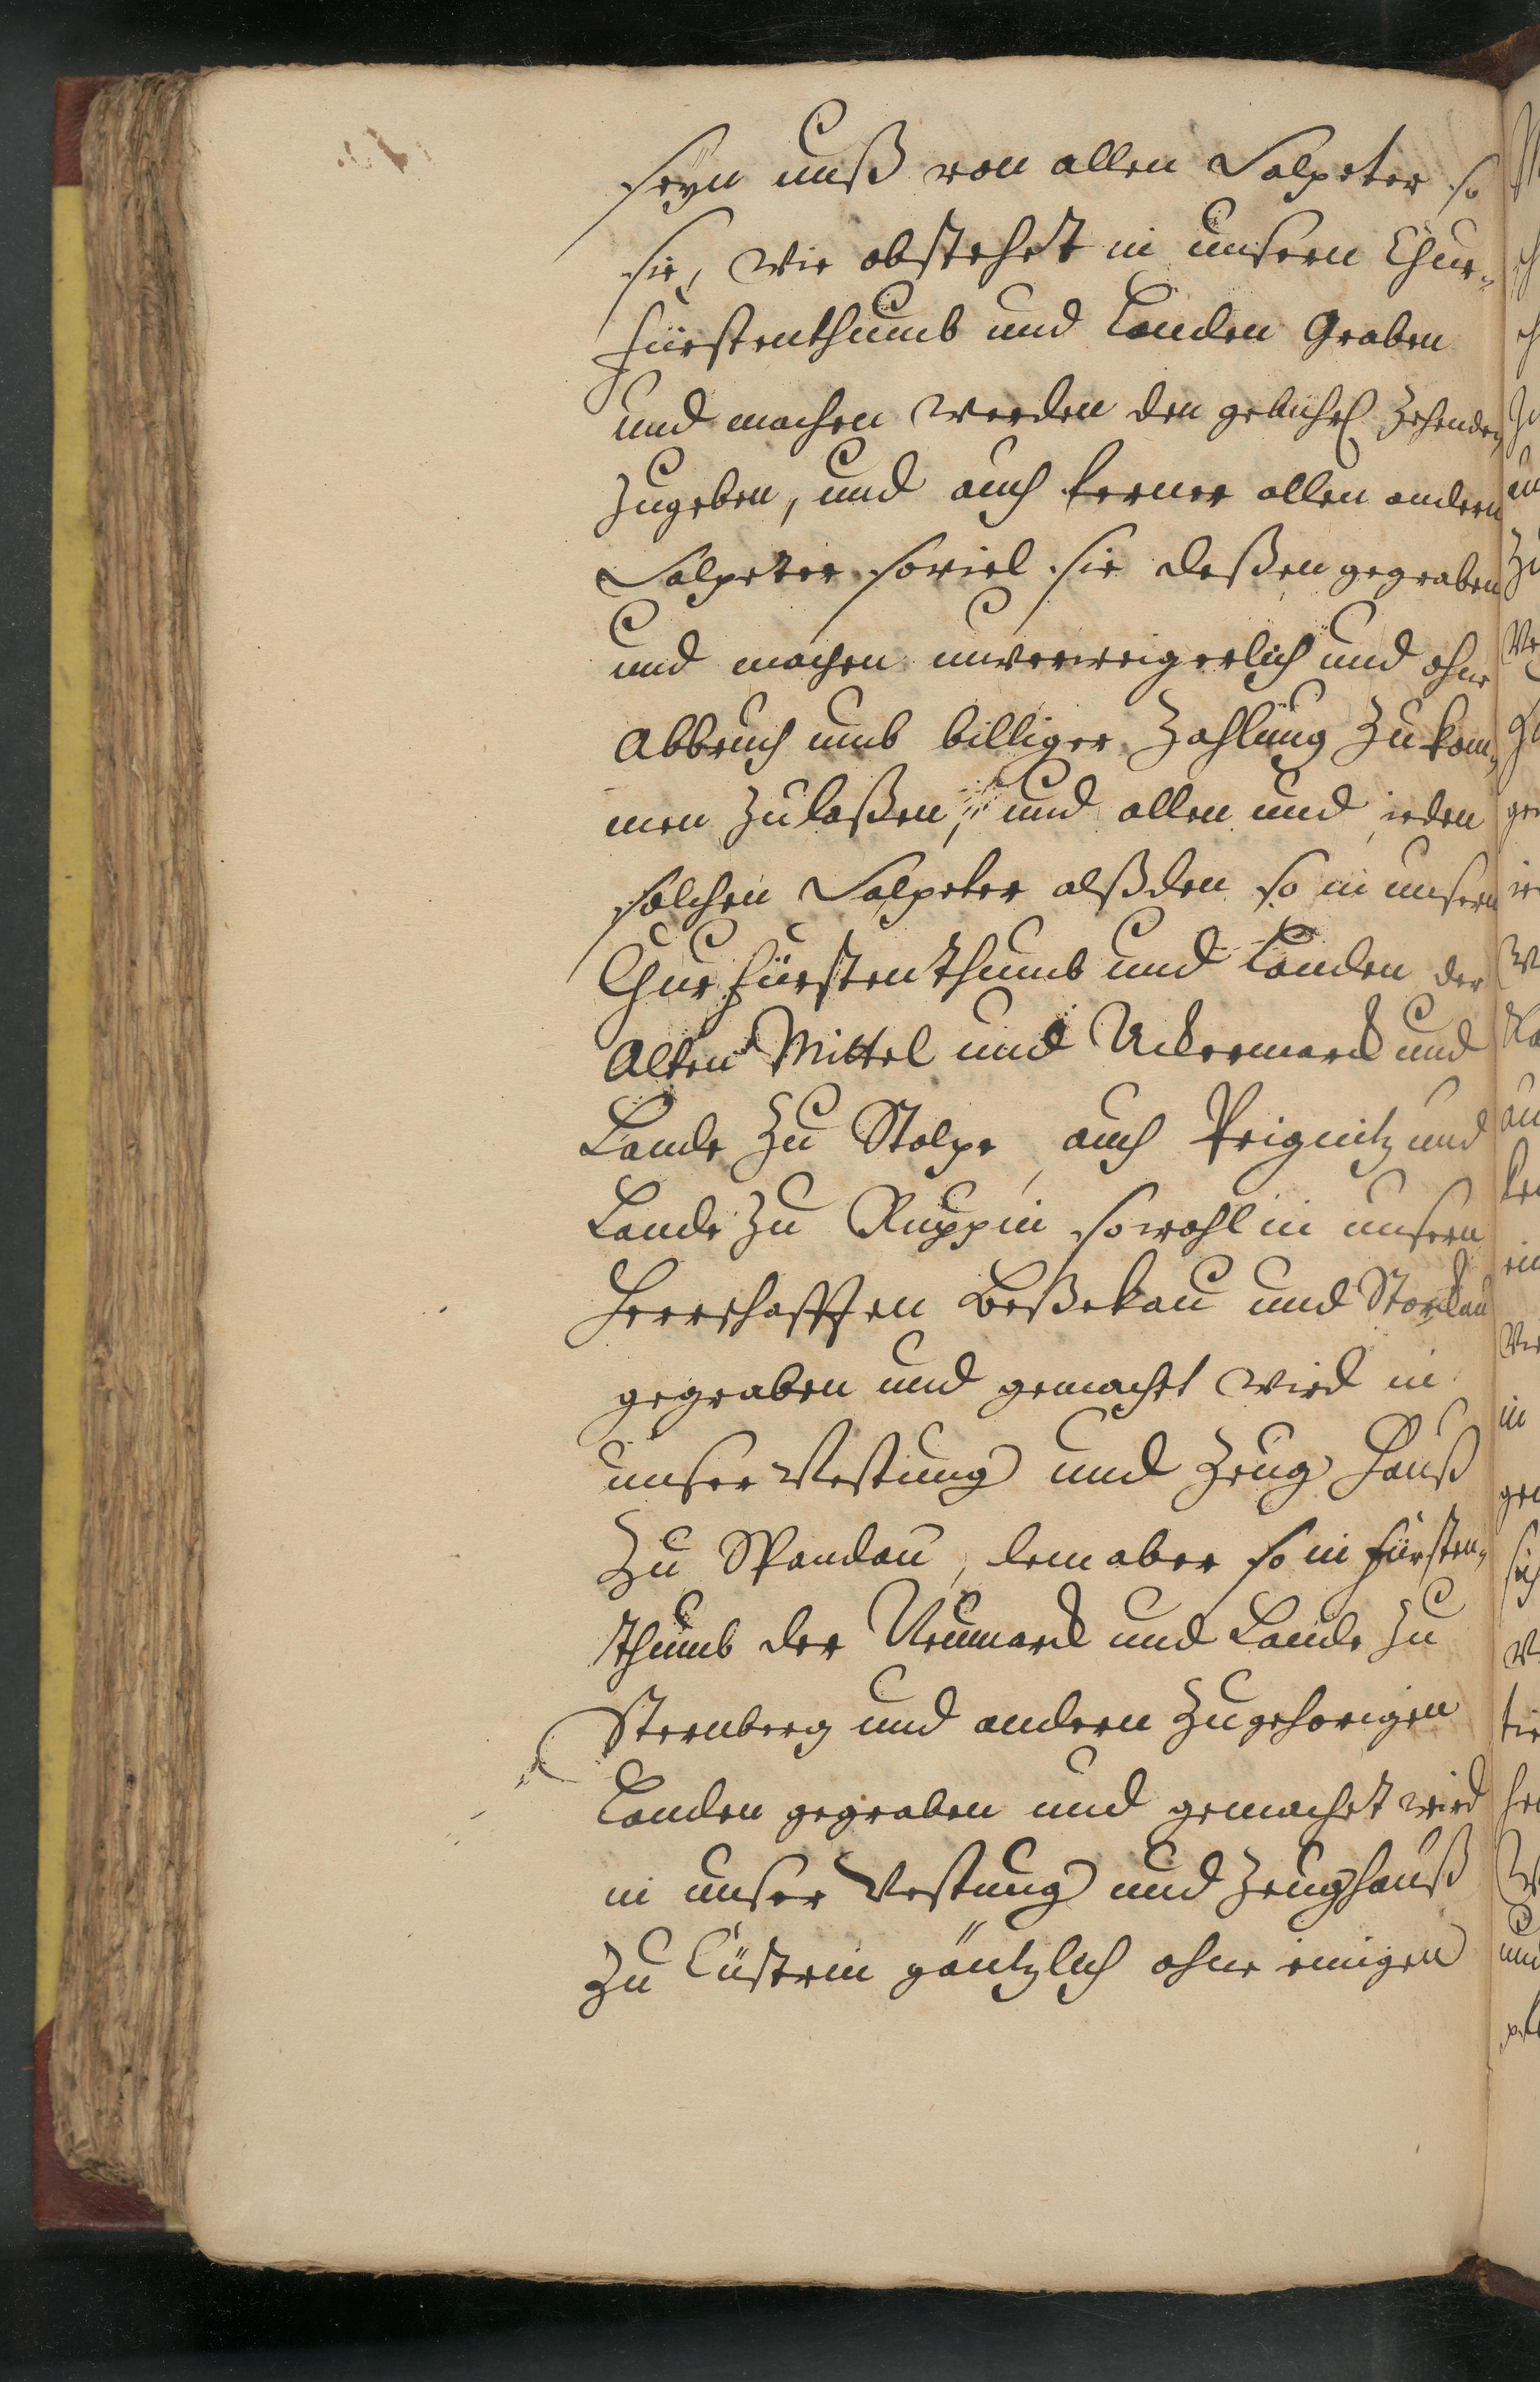 seyn unß von allen Salpeter so
sie, wie obstehet in unsern Chur-
fürstenthumb und Landen Graben
und machen werden den gebührl. Zehenden
Zugeben, und auch ferner allen andern
Salpeter soviel sie deßen gegraben
und machen unverweigerlich und ohne
Abbruch umb billiger Zahlung Zukom-
men Zulaßen, und allen und ieden
solchen Salpeter alßden so in unsern
Churfürstenthumb und Landen der
Alten Mittel und Uckermarck und
Lande Zu Stolpe, auch Prignitz und
Lande Zu Ruppin sowohl in unsern
Herrschafften Beßekau und Storckau
gegraben und gemacht wird in
unser Vestung und Zeug Hauß
Zu Spandau, dem aber so in fürsten-
thumb der Neumarck und Lande Zu
Sternberg und andern Zugehorigen
Landen gegraben und gemachet wird
in unser Vestung und Zeughauß
Zu Cüstrin gäntzlich ohne einigen